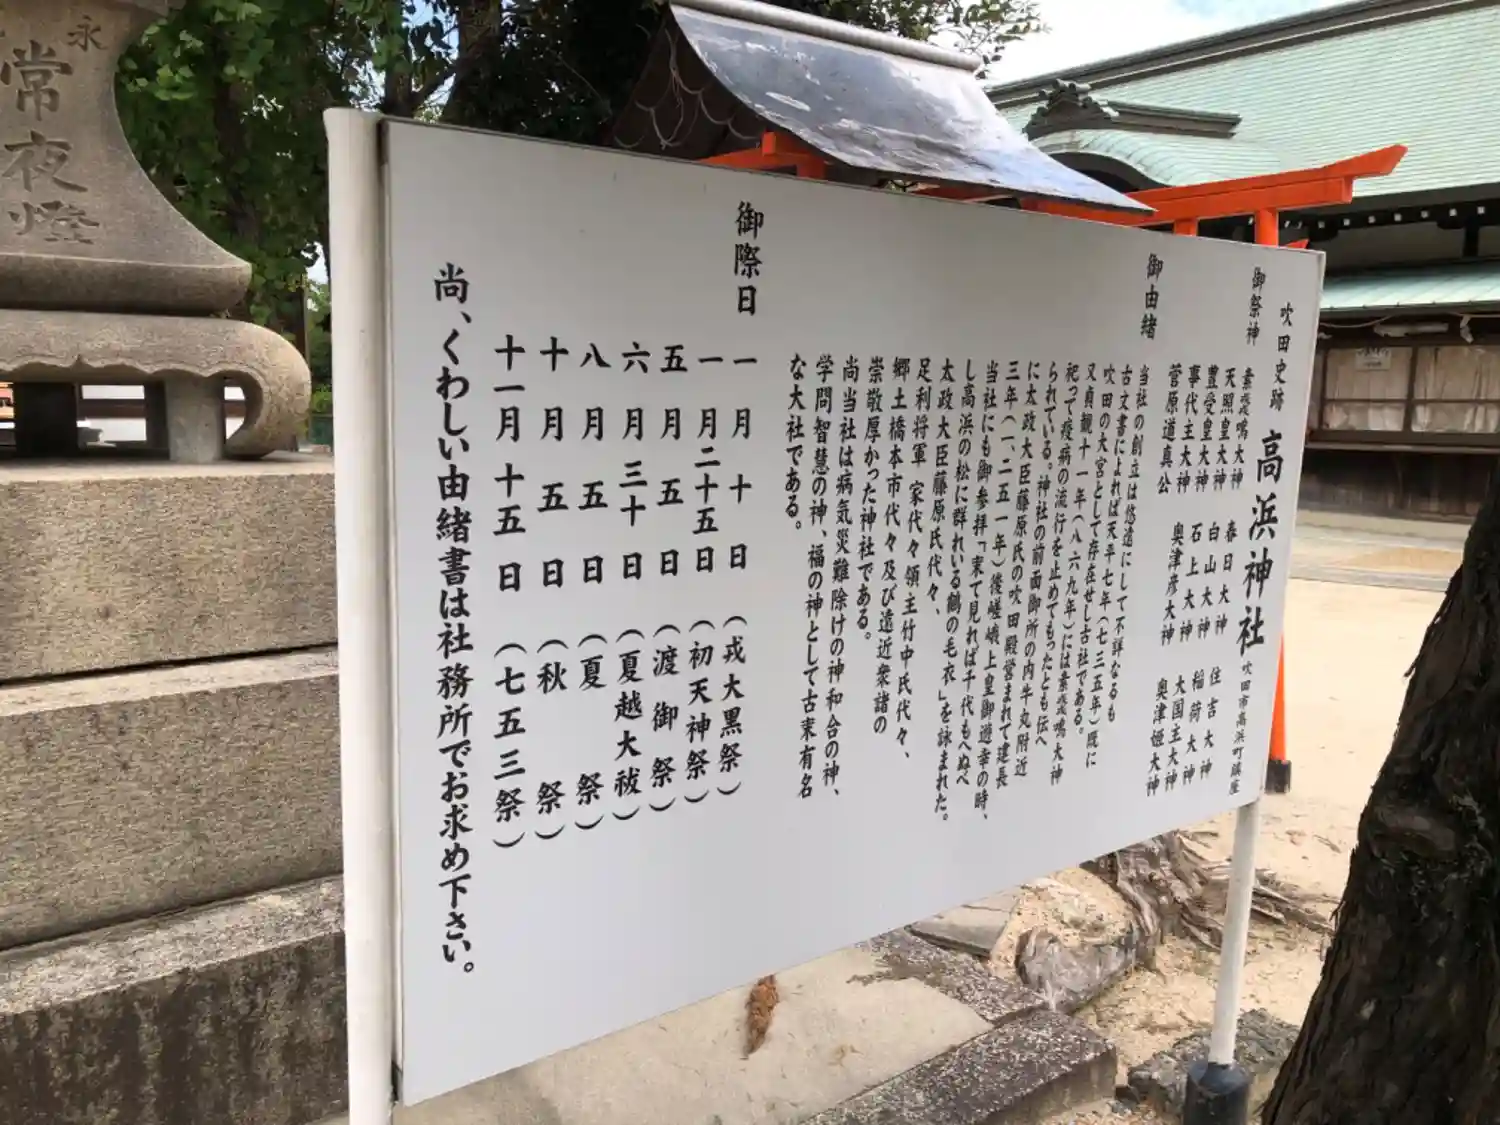 吹田史跡 高浜神社 吹田市高浜町鎮座
御祭神
素盞嗚大神 春日大神 住吉大神
天照皇大神 白山大神 稲荷大神
豊受皇大神 石上大神 大国主大神
事代主大神 奥津彦大神 奥津姫大神
菅原道真公
御由緒
当社の創立は悠遠にして不詳なるも
古文書によれば天平七年(七三五年)既に
吹田の大宮として存在せし古社である。
又貞観十一年(八六九年)には素盞嗚大神
祀って疫病の流行を止めてもったとも伝へ
られている。神社の前面御所の内牛丸附近
に太政大臣藤原氏の吹田殿営まれて建長
三年(一、二五一年)後嵯峨上皇御遊幸の時、
当社にも御参拝「来て見れば千代もへぬべ
し高浜の松に群れいる鶴の毛衣」を詠まれた。
太政大臣藤原氏代々、
足利将軍家代々領主竹中氏代々、
郷土橋本市代々及び遠近衆諸の
崇敬厚かった神社である。
尚当社は病気災難除けの神和合の神、
学問智慧の神、福の神として古来有名
な大社である。
御際日
一月十日(戎大黒祭)
一月二十五日(初天神祭)
五月五日(渡御祭)
六月三十日(夏越大祓)
八月五日(夏祭)
十月五日(秋祭)
十一月十五日(七五三祭)
尚、くわしい由緒書は社務所でお求め下さい。
永
常夜燈